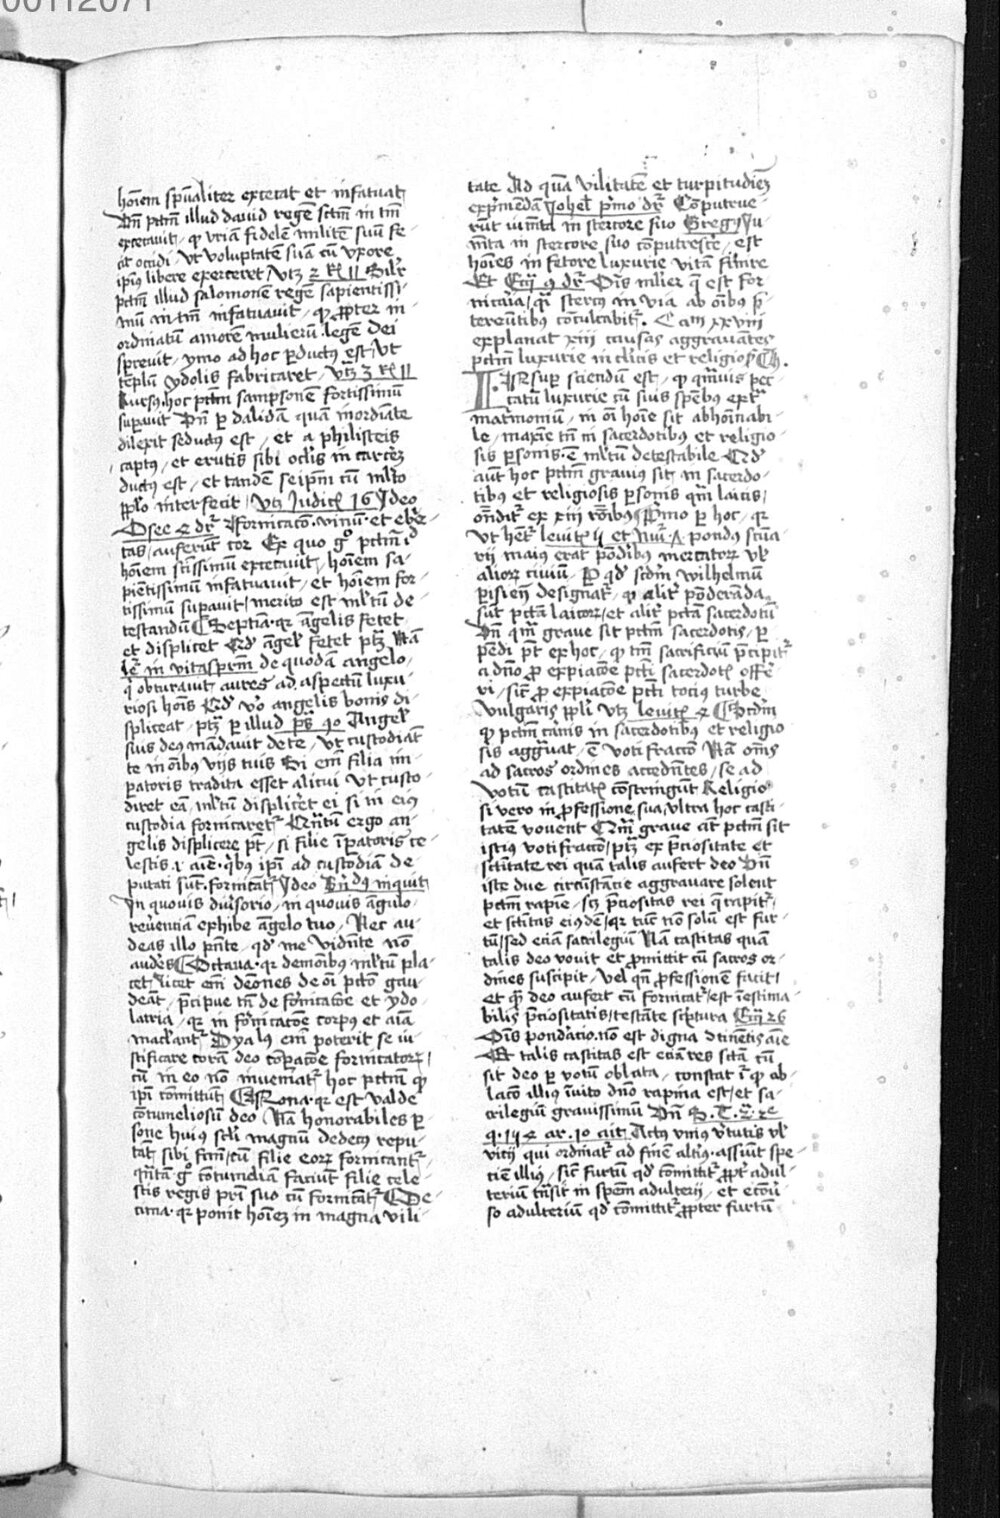 00112071
hoīem spūaliter excecat et infatuat
Dn̄ pctm̄ illud dauid regē sctm̄ in tm̄
excecauit, qͥ vriā fidelē militē suū fe-
cit occidi, vt voluptatē suā cū vxore
ipiꝰ libere exerceret, vtꝫ 2 Rͤ 11 Silr̄
pctm̄ illud salomonē regē sapientissi-
mū in tm̄ infatuauit, qͥ ꝓpter in-
ordinatū amorē mulierū legē dei
spreuit, ymo ad hoc ꝑductꝰ est, vt
templū ydolis fabricaret, vtꝫ 3 Rͤ 11
Rursꝰ, hoc pctm̄ sampsonē fortissimū
supauit Dn̄ ꝑ dalidam quā inordīate
dilexit seductꝰ est, et a philisteis
captꝰ, et erutis sibi oclīs in carcēꝫ
ductꝰ est, et tandē seipm̄ cū ml̄to
ppl̄o interfecit, vtꝫ Judicꝫ 16 Ideo
Osee 4 dr̄ Fornicaco̅. vinū. et ebr̄e-
tas, auferūt cor Ex quo gͦ pctm̄ id
hoīem sctissimū excecauit, hoīem sa-
pientissimū infatuauit, et hoīem for-
tissimū supauit, merito est ml̄tū de-
testandū Septīa. qꝛ āgelis fetet
et displicet Qd̓ āgel̓ fetet ptꝫ Nā
lr̄ in vitaspr̄m de quodā angelo,
qͥ obturauit aures ad aspectū luxu-
riosi hoīs Qd̓ vͦo angelis bonis di-
spliceat, ptꝫ ꝑ illud ps̄ 90 Angel̓
suis deꝰ mādauit de te, vt custodiāt
te in oībꝰ vijs tuis Si em̄ filia im-
peratoris tradita esset alicui vt custo-
diret eā, ml̄tū displicēt ei si in eiꝰ
custodia fornicaret Qn̄tū ergo an-
gelis displicere pt̄, si filie īꝑatoris ce-
lestis .i. aīe. qͥbꝰ ipī ad custodiā de-
putati sūt. fornicāt Ideo Bn̄dꝰ inquit
In quouis diu̓sorio, in quouis āgulo,
reuētiam exhibe āgelo tuo, Nec au-
deas illo pn̄te, qd̓ me vidēte nō
audēs Octaua. qꝛ demoībꝰ ml̄tū pla-
cet, licet em̄ deōnes de oī pctō gau-
deāt, p̄cipue tn̄ de fornicacōe et ydo-
latria, qꝛ in fornicacōe corpꝰ et aīā
maclant
Dyalꝰ em̄ poterit se iu-
stificare corā deo cōpacōe fornicatoꝝ,
cū in eo nō inueniat hoc pctm̄ qd̓
ipī cōmittūt Nona. qꝛ est valde
cōtumeliosū deo Nā honorabiles ꝑ-
sone huiꝰ scl̄i magnū dedecꝰ repu-
tāt sibi fcm̄, cū filie eoꝝ fornicant,
qn̄tā gͦ cōtumeliā faciūt filie cele-
stis regis pr̄i suo cū fornicāt De-
cima. qꝛ ponit hoīeꝫ in magna vili-
tate Ad quā vilitatē et turpitudinēꝫ
exp̄mēdā Johel̓ pͥmo dr̄ Cōputrue-
rūt iumēta in stercore suo Gregꝰ Ju-
mēta in stercore suo cōputrescēt, est
hoīes in fetore luxurie vitā finire
Et Ecci 9 dr̄ Oīs ml̄ier q̄ est for-
nicaria, qͣi stercꝰ in via ab oībꝰ p̄-
tereūtibꝰ cōculcabit. Cam xxviii
explanat xiii causas aggrauātes
pctm̄ luxurie in cl̄icis et religioꝫ.
INsuper sciendū est, qͥ qm̄uis pec-
catū luxurie cū suis spēbꝰ extͣ
mat̄rmoniū, in oī hoīe sit abhoīnabi-
le, maxīe tn̄ in sacerdotibꝰ et religio-
sis ꝑsonis. ē ml̄tū detestabile Qd̓
aūt hoc pctm̄ grauiꝰ sit in sacerdo-
tibꝰ et religiosis ꝑsonis qm̄ laicis,
on̄dit ex xiii rōibꝰ Pͥmo ꝑ hoc, qꝛ
vt het̄ leuitꝫ ij et nu̓i pondꝰ sctūa-
rij maiꝰ erat pōdibꝰ mercatoꝝ vl̓
alioꝝ ciuiū, Per qd̓ scdm̄ wilhelmū
parisien̄ designat, qͥ alit̓ pōderāda
sūt pctā laicoꝝ, et alit̓ pctā sacerdotū
Dn̄ qm̄ graue sit pctm̄ sacerdotis, per-
pēdi pt̄ ex hoc, qͥ tm̄ sacrificiū p̄cipit
a dn̄o ꝓ expiacōe pcti sacerdotꝫ offer-
ri, sic̄ ꝓ expiacōe pcti tociꝰ turbe
vulgaris ppl̄i vtꝫ leuitꝫ 4 Scdm̄
qd̓ pctm̄ carnis in sacerdotibꝰ et religio-
sis aggrauat, ē voti fractio Nā oēs
ad sacros ordines accedētes, se ad
votū castitatꝫ cōstringūt Religiosi
si vero in ꝓfessione sua, vltra hoc casti-
tatē vouent Qm̄ graue aūt pctm̄ sit
istiꝰ voti fractio, ptꝫ ex p̄ciositate et
sctītate rei quā talis aufert deo Dn̄
iste due circūstācie aggrauare solent
pctm̄ rapīe, scꝫ p̄ciositas rei q̄ rapit,
et sctītas eiꝰdē, qꝛ tūc nō solū est fur-
tū, sed eciā sacrilegiū Nā castitas quā
talis deo vouit et ꝓmittit cū sacros or-
dines suscipit, vel qn̄ ꝓfessionē facit,
et quā deo aufert cū fornicat, est īestima-
bilis p̄ciositatis, testāte scriptura Ecci 26
Oīs pondacio. nō est digna ōtinētis aīe
Et talis castitas est eciā res sctā cū
sit deo ꝑ votū oblata, constat īͥ qͥ ab-
lacō illiꝰ īuito dn̄o rapina est, et sa-
crilegiū grauissimū Dn̄ S. T. 2ª 2e
q. 154 ar. 10 ait Actꝰ vniꝰ v̓tutis vl̓
vitij qui ordinat ad finē alteriꝰ, assūit spe-
ciē illiꝰ, sic̄ furtū qd̓ cōmittit ꝓpt̓ adul-
teriū tr̄nsit in spēm adulterij, et ecōu̓-
so adulteriū qd̓ cōmittit ꝓpter furtū